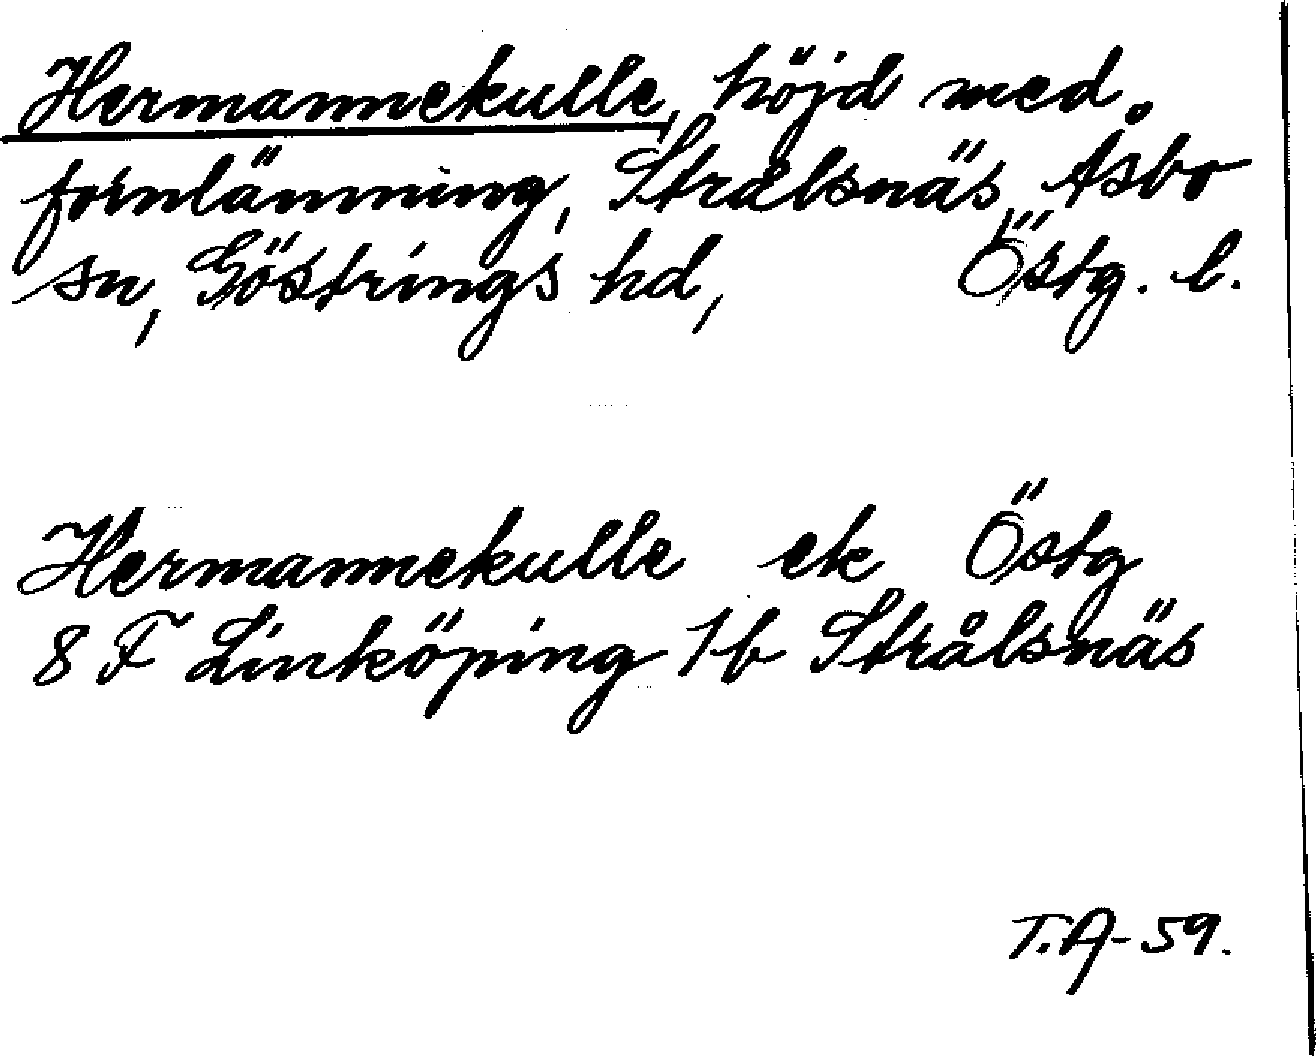 Hermannekulle, höjd med
fornlämning, Strålsnäs, Åsbo
sn, Göstrings hd, Östg. l.
Hermannekulle ek Östg
8 F Linköping 1b Strålsnäs
T.A-59.